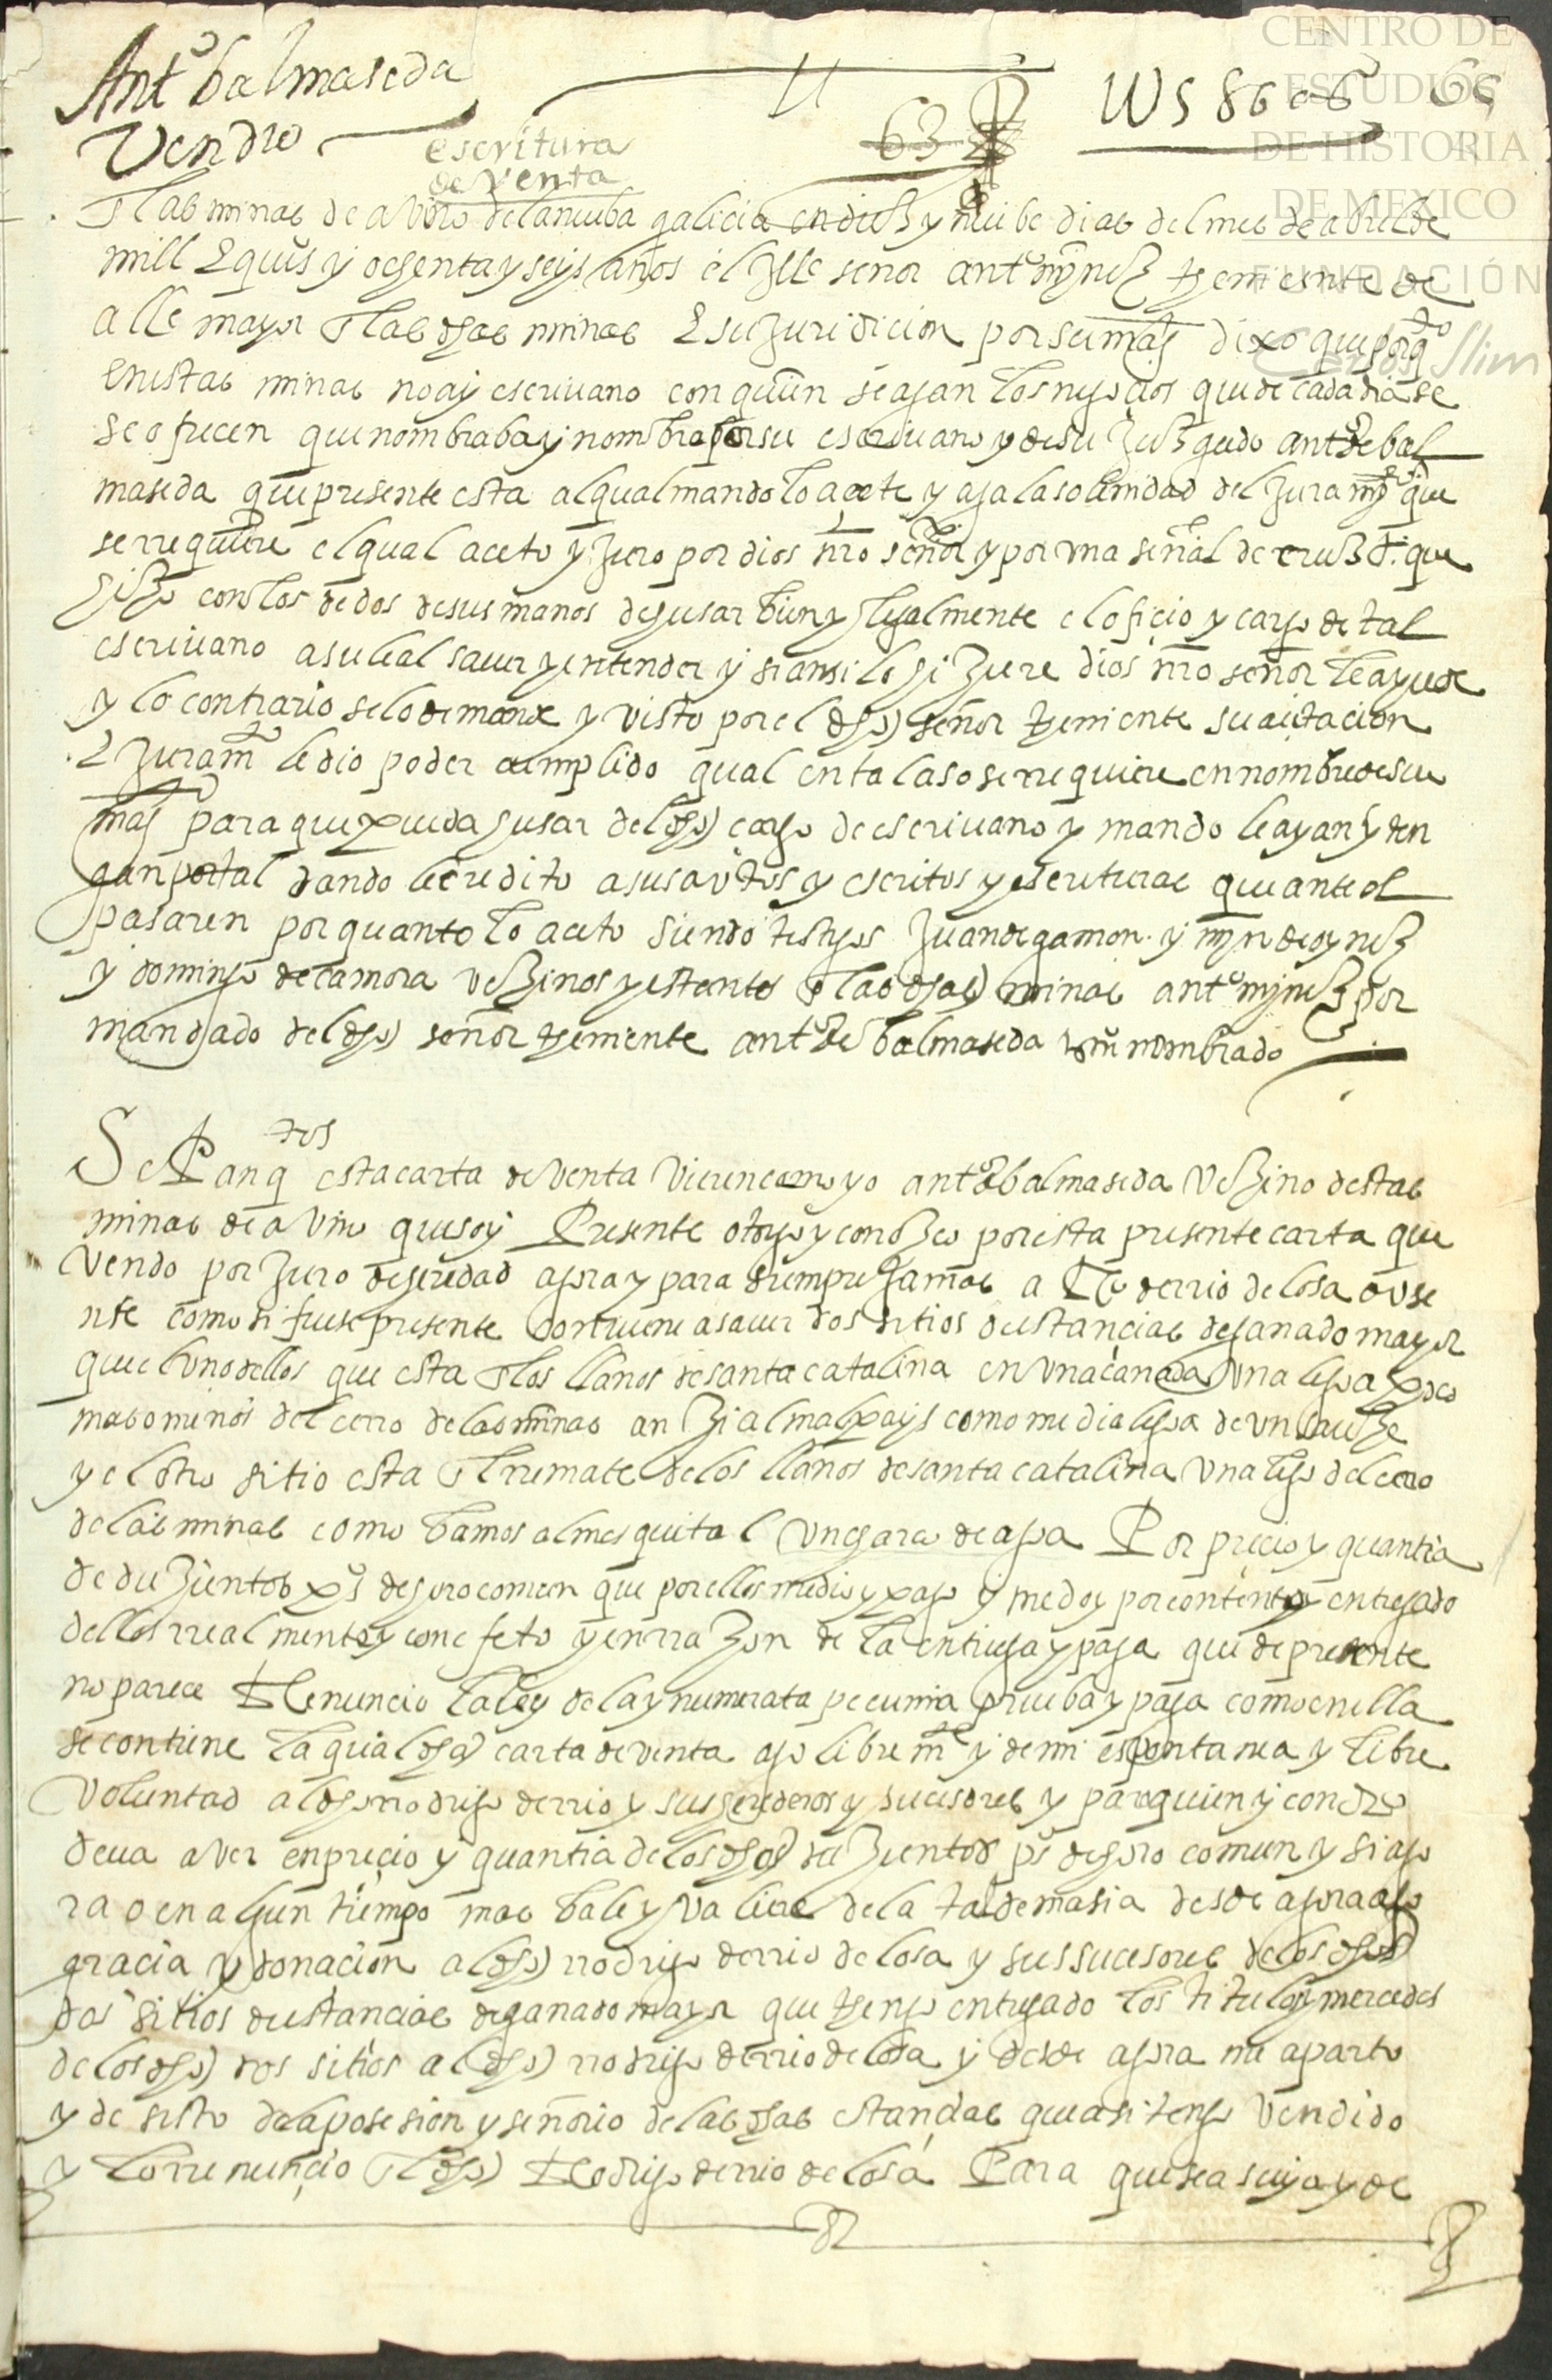 Antº balmaseda
Vendio
escritura
de venta
63
U
WS 8606
66
CENTRO DE
ESTUDIOS
DE HISTORIA
DE MEXICO
FUNDACIÓN
Carlos Slim
En las minas de aviño de la nueba galicia en diez y nuebe dias del mes de abril de
mill e quis y ochenta y seys años el ylle señor antº mynez theniente de
alle mayor en las dhas minas e su juridicion por su magd dixo que por qto
en estas minas no ay escriuano con quien se agan los negocios que de cada dia se
se ofrecen que nombraba y nombro por su escriuano y de su juzgado antº de bal
maseda que presente esta al qual mando lo acete y aga la solenidad del juramto que
se rrequiere el qual aceto y juro por dios nro señor y por una señal de cruz que
hizo con los dedos de sus manos de husar bien y legalmente el oficio y cargo de tal
escriuano a su leal saver y entender y si ansi lo hiziere dios nro señor le ayude
y lo contrario se lo demande y visto por el dho señor theniente su acetacion
e juramto le dio poder cumplido qual en tal caso se rrequiere en nombre de su
magd para que pueda husar del dho cargo de escriuano y mando le ayan y ten
gan por tal dandole credito a sus autos y escritos y escrituras que ante el
pasaren por quanto lo aceto siendo testigos juan de gamon y myn de oynez
y domingo de camora vezinos y estantes en las dhas minas antº mynez por
mandado del dho señor theniente antº de balmaseda nombrado
Sepan qtos esta carta de venta vieren como yo antº de balmaseda vezino destas
minas de aviño que soy presente otorgo y conozco por esta presente carta que
vendo por juro de heredad agora y para siempre jamas a Rº derrio de losa avse
nte como si fuese presente conviene a saver dos sitios destancias de ganado mayor
que el vno dellos que esta en los llanos de santa catalina en vna cañada vna legua poco
mas o menos del cerro de las minas azia el malpays como media legua de vn sauze
y el otro sitio esta en el rremate de los llanos de santa catalina vna legua del cerro
de las minas como bamos al mesquital vn charco de agua Por precio y quantia
de duzientos pºs de horo comun que por ellos me dio y pago y me doy por contento y entregado
dellos rrealmente y con efeto y en rrazon de la entrega y paga que de presente
no parece Renuncio la ley de la ynumerata pecunia prueba y paga como en ella
se contiene la qual dha carta de venta ago libremte y de mi espontanea y libre
voluntad al dho rrodrigo derrio y sus herederos y sucesores y para quien y con dro
deua aver en precio y quantia de los dhos duzientos pºs de horo comun y si ago
ra o en algun tiempo mas bale y valiere de la tal demasia desde agora ago
gracia y donacion al dho rrodrigo derrio de losa y sus sucesores de los dhos
dos sitios destancias de ganado mayor que tengo entregado los titulos y mercedes
de los dhos dos sitios al dho rrodrigo derrio de losa y desde agora me aparto
y desisto de la posesion y señorio de las dhas estancias que asi tengo vendido
y lo rrenuncio en el dho Rodrigo derrio de losa Para que sea suya y de